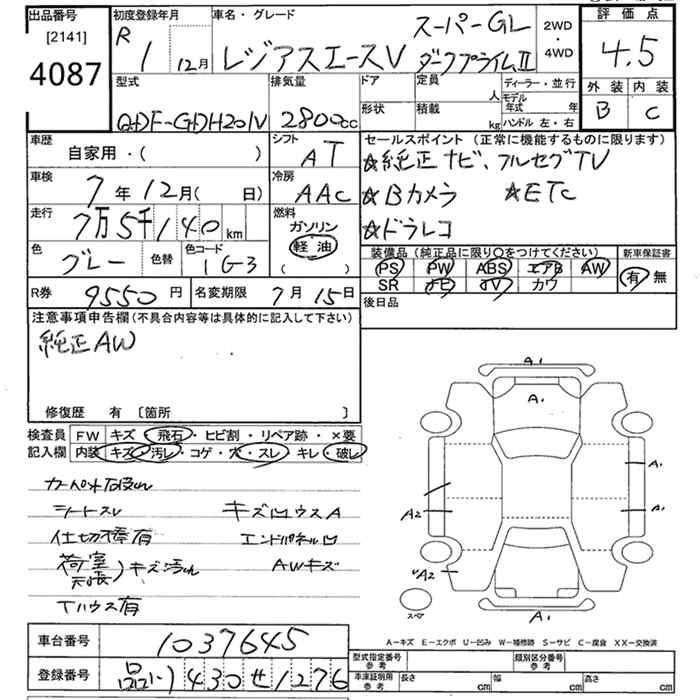 出品番号 初度登録年月 車名・グレード 評価点
[2141] R 1 12月 レジアスエースV スーパーGL 2WD・4WD 4.5
4087 ダークプライムⅡ
型式 排気量 ドア 定員 人 ディーラー・並行 外装 内装
QDF-GDH201V 2800cc 形状 積載 kg モデル年式 年 B C
ハンドル 左・右
車歴 自家用・( ) シフト AT セールスポイント (正常に機能するものに限ります)
車検 7年12月( 日) 冷房 AAC ☆純正ナビ、フルセグTV
☆Bカメラ ☆ETC
走行 7万5千140km 燃料 ガソリン 軽油 ( ) ☆ドラレコ
色 グレー 色替 色コード 1G3 装備品 (純正品に限り○をつけてください) 新車保証書
PS PW ABS エアB AW 有 無
SR ナビ TV カワ
R券 9550円 名変期限 7月15日 後日品
注意事項申告欄(不具合内容等は具体的に記入して下さい)
純正AW
修復歴 有 [箇所 ]
検査員 FW キズ・飛石・ヒビ割・リペア跡・×要
記入欄 内装 キズ・汚レ・コゲ・穴・スレ・キレ・破レ
シートスレ キズ凹ウスA
仕切棒有 エンドパネル凹
荷室 天張)キズ汚れ AWキズ
Tハウス有
A1
A1
A1
A2 A1
A2
スペア A1
A-キズ E-エクボ U-凹み W-補修跡 S-サビ C-腐食 XX-交換済
車台番号 1037645
登録番号 品川 430 せ 1276
型式指定番号 参考 類別区分番号 参考
車庫証明用 参考 長さ cm 幅 cm 高さ cm